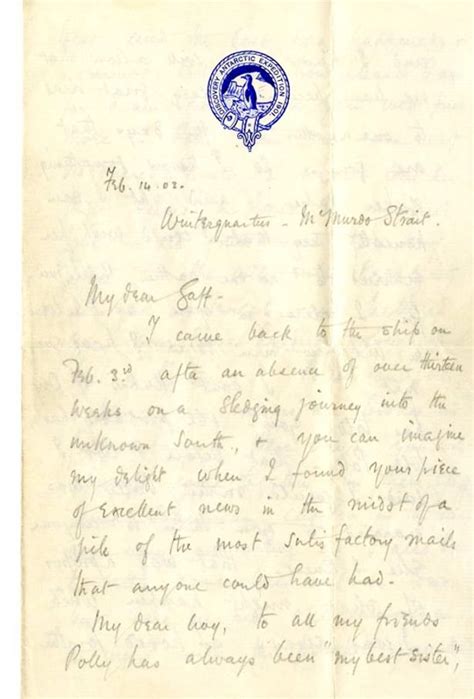 DISCOVERY ANTARCTIC EXPEDITION 1901
Feb. 14. 02.
Winterquarters - McMurdo Strait.
My dear Gaff -
I came back to the ship on
Feb. 3rd after an absence of over thirteen
weeks on a sledging journey into the
unknown South, & you can imagine
my delight when I found your piece
of excellent news in the midst of a
pile of the most satisfactory mails
that anyone could have had -
My dear boy, to all my friends
Polly has always been "my best sister",